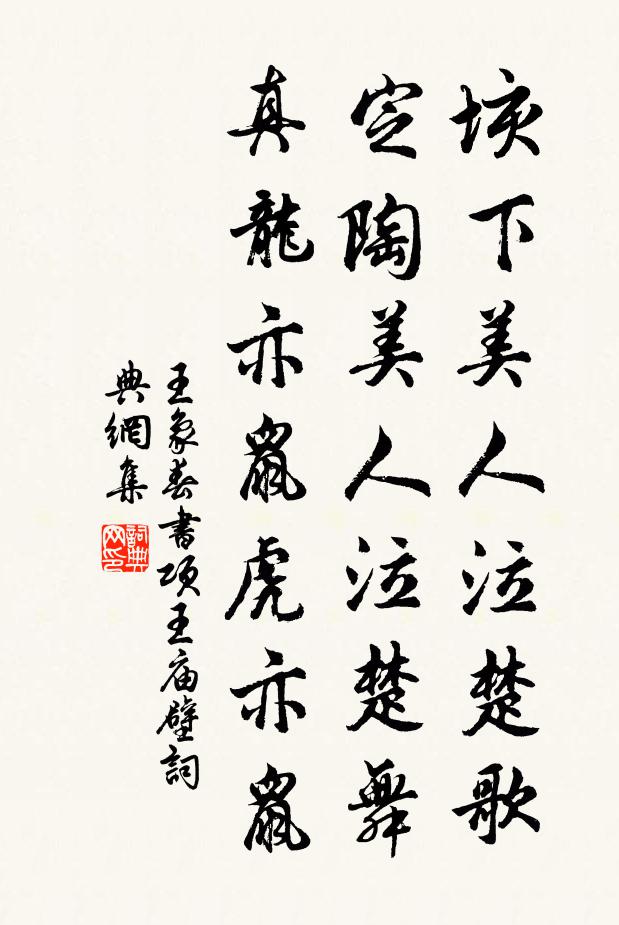 垓下美人泣楚歌
定陶美人泣楚舞
真龍亦鼠虎亦鼠
王象春書項王廟壁詞
典網集
詞典網印